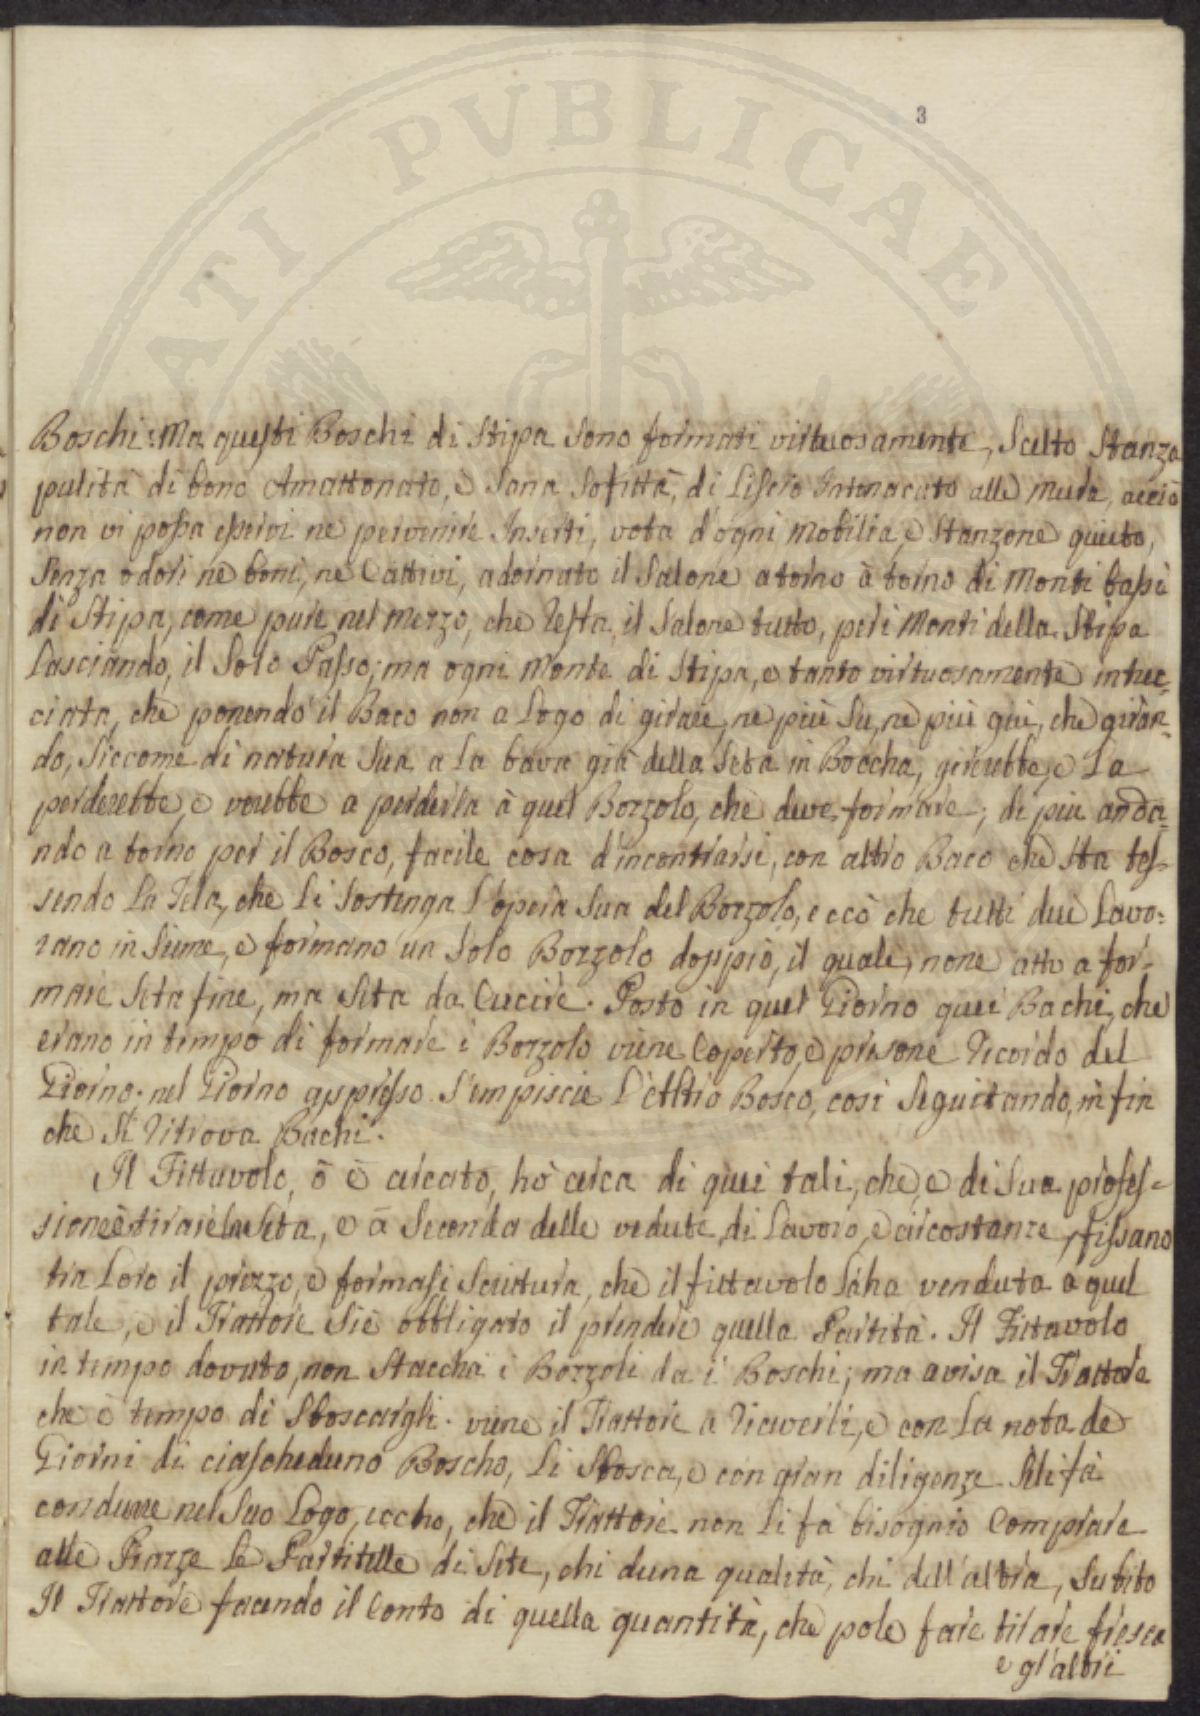 ATI PVBLICAE
3
Boschi: Ma questi Boschi di Stipa sono formati virtuosamente, Scelto Stanza
pulita di bono Amattonato, è Sana Sofitta, di Liscio Intonacato alle Mura, acciò
non vi possa esservi ne pervenire Inserti, vota d'ogni Mobilia, e Stanzone quieto,
Senza odori ne boni, ne Cattivi, adornato il Salone atorno à torno di Monti bassi
di Stipa, come pure nel Mezzo, che resta, il Salone tutto, per i Monti della Stipa
Lasciando, il Solo Passo; ma ogni Monte di Stipa, e tanto virtuosamente intrec-
ciata, che ponendo il Baco non a Logo di girare, ne più Su, ne più giù, che giran-
do, Siccome di natura Sua a la bava già della Seta in Boccha, girerebbe, e La
perderebbe, e verebbe a perderla à quel Bozzolo, che deve formare; di più anda-
ndo a torno per il Bosco, facile cosa d'incontrarsi, con altro Baco che Sta tes-
sendo La Tela, che Li Sostenga L'opera Sua del Bozzolo, e ecò che tutti due Lavo-
rano in Sieme, e formano un Solo Bozzolo doppio, il quale, none atto a for-
mare Seta fine, ma Seta da Cucire. Posto in quel Giorno quei Bachi, che
erano in tempo di formare i Bozzolo viene Coperto, e presone ricordo del
Giorno. nel Giorno appresso S'empiscie L'Altro Bosco, così Seguitando, in fin
che Si ritrova Bachi.
Il Fittavolo, ò è cercato, hò cerca di quei tali, che, e di Sua profes-
sione è tirare la Seta, e à Seconda delle vedute, di Lavoro, e circostanze, fissano
tra Loro il prezzo, e formasi Scrittura, che il fittavolo L'aha venduta a quel
tale, e il Trattore Siè obbligato il prendere quella Partita. Il Fittavolo
in tempo dovuto, non Staccha i Bozzoli da i Boschi; ma avisa il Trattore
che è tempo di Sboscargli. viene il Trattore a riceverli, e con La nota de
Giorni di ciascheduno Boscho, Li Sbosca, e con gran diligenze Seli fà
condurre nel Suo Logo, eccho, che il Trattore non Li fà bisognio Comprare
alle Piazze Le Partitelle di Sete, chi duna qualità, chi dell'altra, Subito
Il Trattore facendo il Conto di quella quantità, che pole fare tirare fresca
e gl'altri